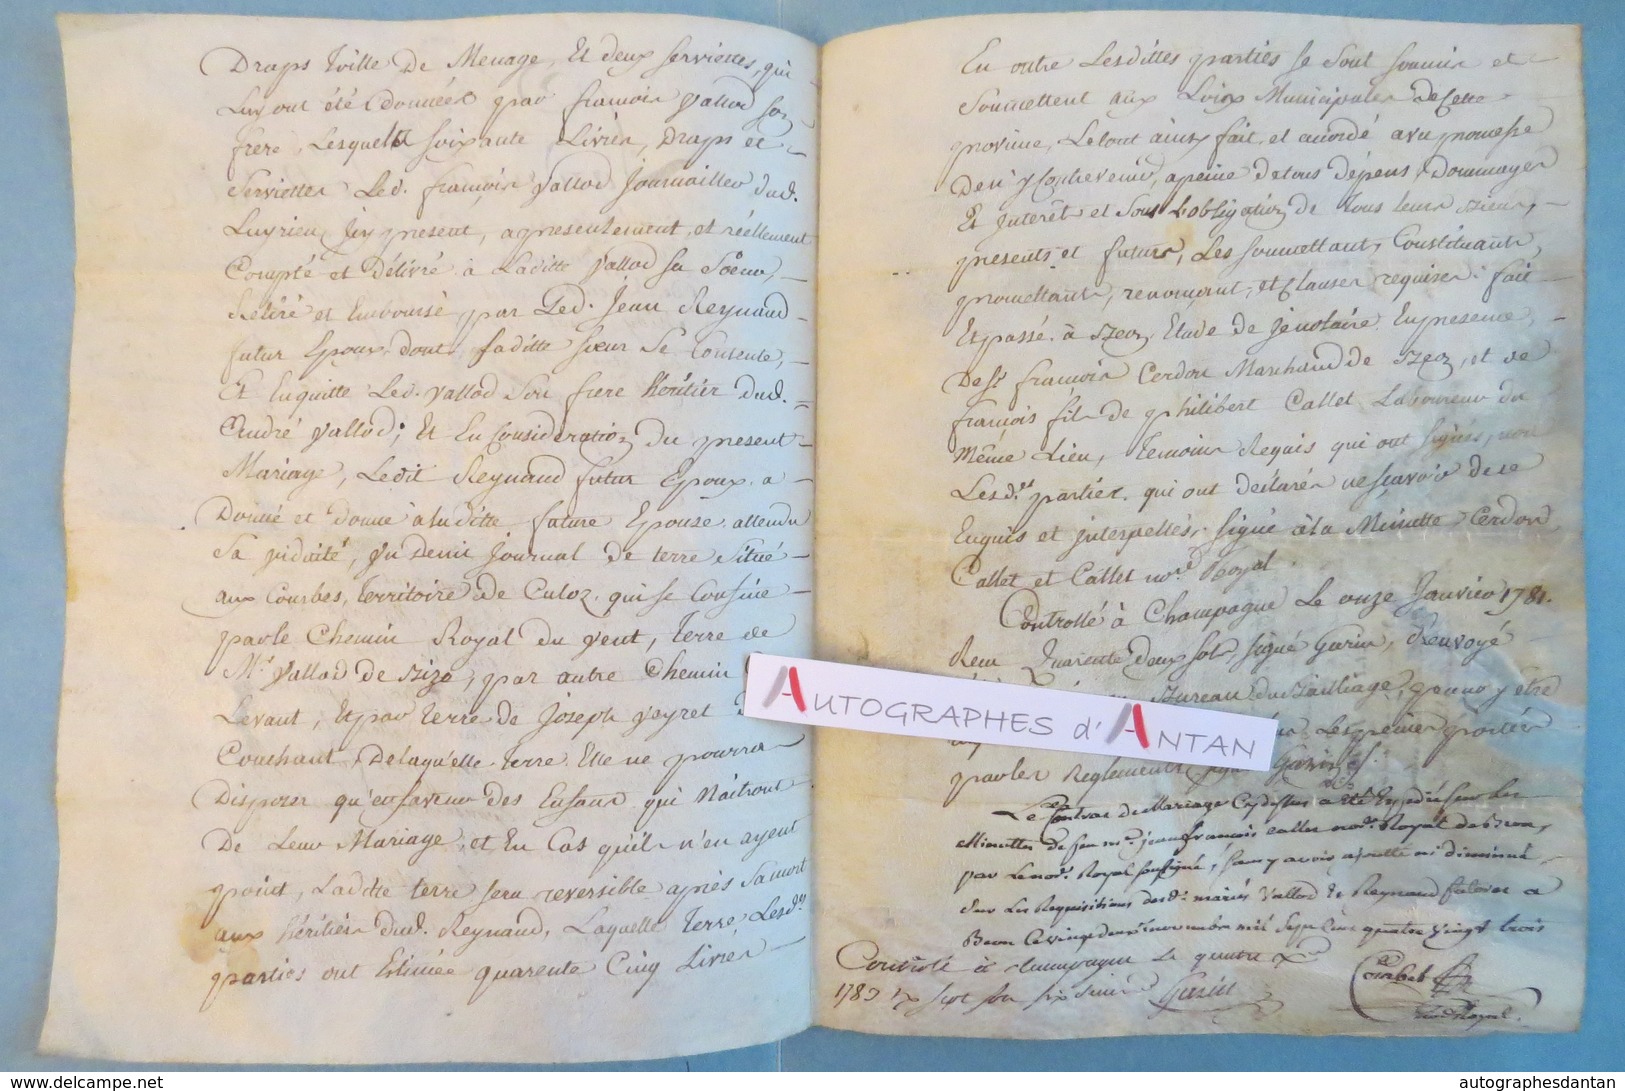 Draps toille De Menage, Et deux serviettes, qui
Luy ont été données par françois vallod son
frere, Lesquels soixante Livres, Draps et
Serviettes Led. françois vallod Journallier dud.
Luyrieu, Jcy present, a presentement, et réellement
Compté et Délivré à Laditte vallod sa Soeur,
Retiré et Emboursé, par Led. Jean Reynaud
futur Epoux, dont saditte soeur se Contente,
Et Enquitte Led. vallod son frere héritier dud.
André vallod; Et En Consideration du present
Mariage, Ledit Reynaud futur Epoux, a
Donné et donne à laditte future Epouse, attendu
Sa vidüité, un demi journal de terre situé
aux Courbes, territoire de Culoz, qui se Confine
par le Chemin Royal du vent, terre de
Mr. vallod de Rizo, par autre Chemin
Levant, Et par terre de Joseph veyret
Couchant, De laquelle terre Elle ne pourra
Disposer qu'en faveur des Enfans qui Naîtront
De Leur Mariage, et En Cas qu'ils n'en ayent
point, Laditte terre sera reversible après sa mort
aux héritiers dud. Reynaud, Laquelle terre, Lesd.
parties ont Estimée quarente Cinq Livres
En outre Lesdittes parties se sont soumis et
soumettent aux Loix Municipales de Cette
province, Le tout ainsy fait, et accordé avec promesse
De n'y Contrevenir, a peine de tous dépens, Dommages
Et Interêt et Sous L'obligation de tous leurs Biens,
presents et futurs, Les soumettant, Constituant,
promettant, renonçant, et Clauses requises. fait
Et passé à Beon, Etude de je notaire, En presence,
De Sr. françois Cerdon Marchand de Beon, et de
françois fils de philibert Callet Laboureur du
Même Lieu, temoins Requis qui ont signés, non
Lesd. parties, qui ont déclarés ne sçavoir de ce
Enquis et interpellés, signé à la Minutte Cerdon,
Callet et Callet nore. Royal.
Controllé à Champagne Le onze Janvier 1781.
Reçu Quarente deux sols, signé Garin, Renvoyé
Bureau du Bailliage, pour y être
Les premier portées
par les Reglements signé Garin
Le Contrac de Mariage Cy dessus a eté Expedié sur Les
Minuttes de feu me. jean françois callet nore. Royal de Beon,
par Le nore. Royal soussigné, sans y avoir ajoutté ni diminué
Sur Les Requisitions desd. mariés vallod et Reynaud
Beon Le vingt deux novembre mil sept Cent quatre vingt trois
Controlé à champagne Le quatre Xbre
1783 Rx sept sou six denier Garin
Corbet
nore Royal.
AUTOGRAPHES d'ANTAN
© delcampe.net
autographesdantan